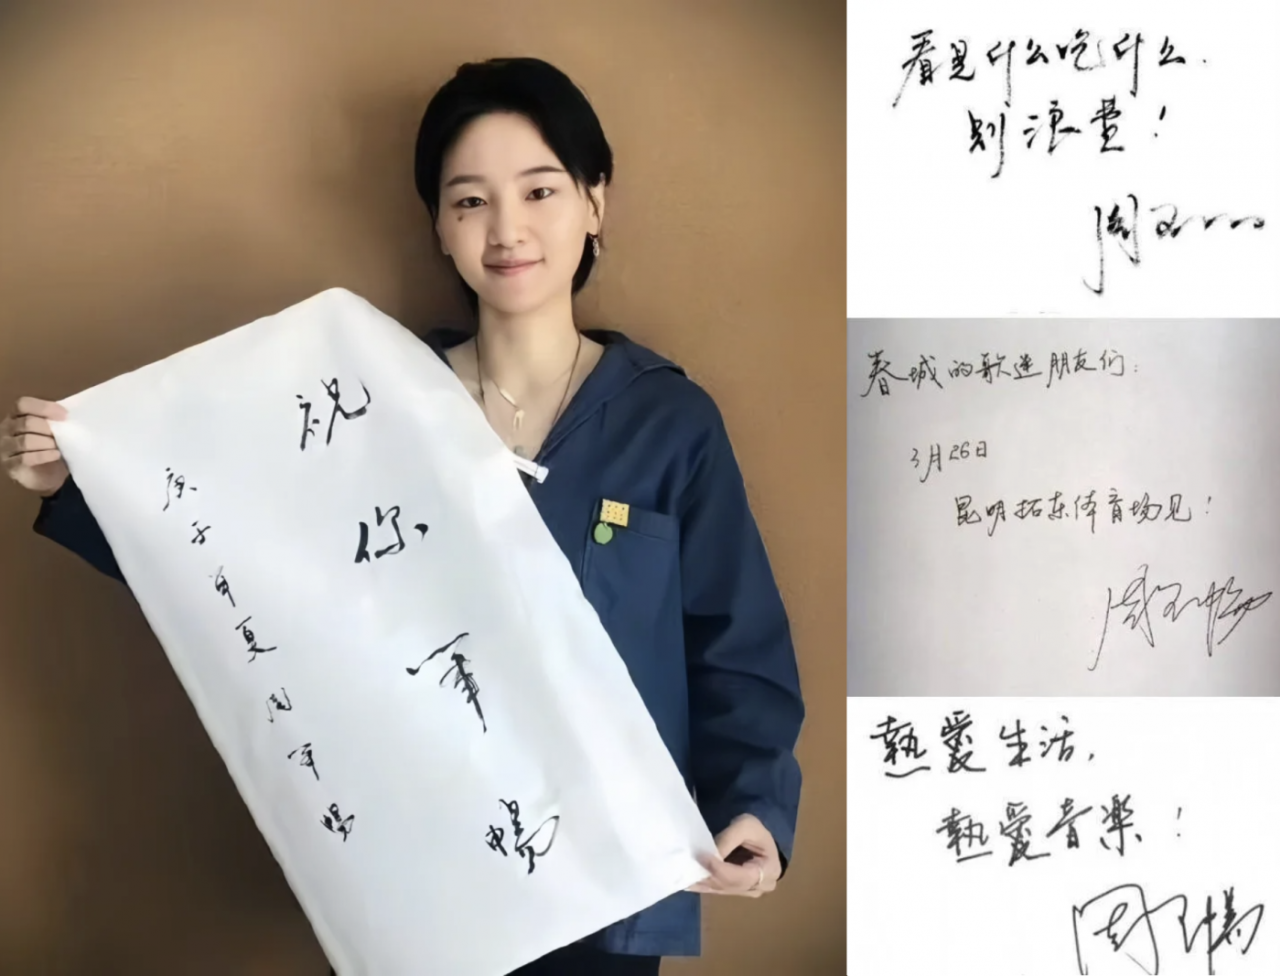 祝你筆暢
庚子年夏周筆暢
看是什么吃什么.
别浪费!
周笔畅
春城的歌迷朋友们:
3月26日
昆明拓东体育场见!
周笔畅
熱愛生活,
熱愛音樂!
周笔畅